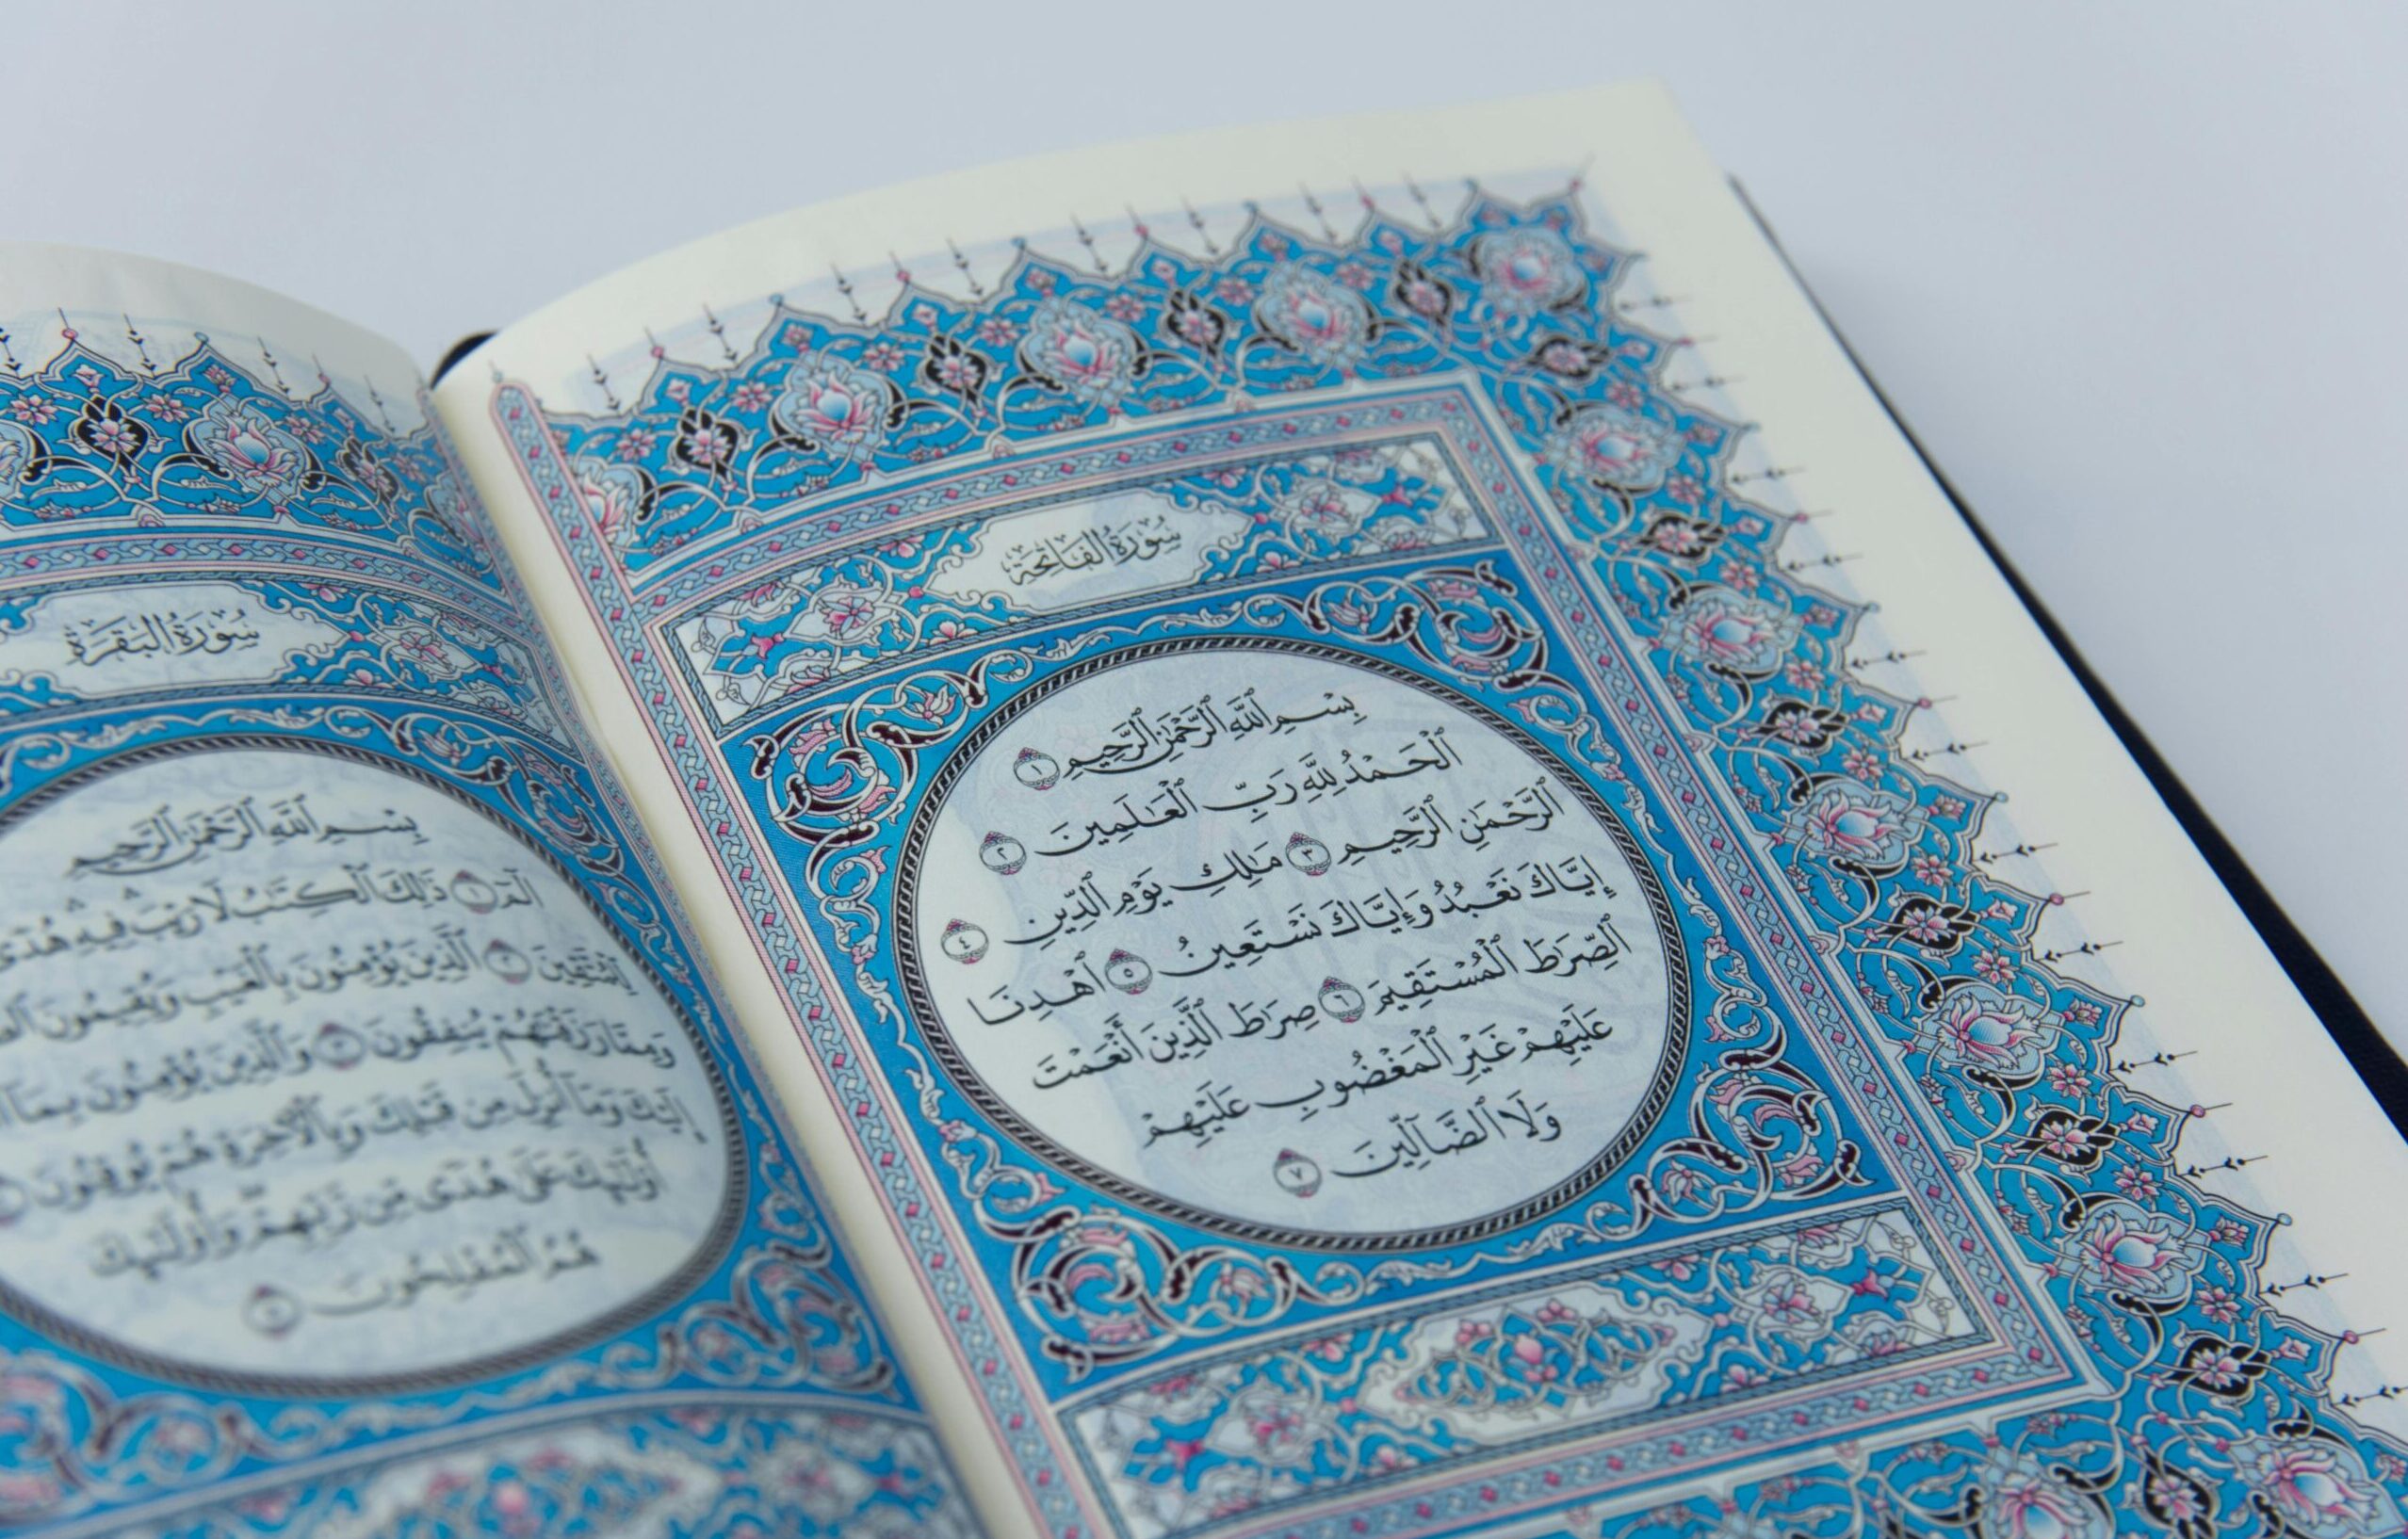 سُورَةُ الفَاتِحَةِ
بِسْمِ ٱللَّهِ ٱلرَّحْمَٰنِ ٱلرَّحِيمِ ١
ٱلْحَمْدُ لِلَّهِ رَبِّ ٱلْعَٰلَمِينَ ٢
ٱلرَّحْمَٰنِ ٱلرَّحِيمِ ٣ مَٰلِكِ يَوْمِ ٱلدِّينِ ٤
إِيَّاكَ نَعْبُدُ وَإِيَّاكَ نَسْتَعِينُ ٥ ٱهْدِنَا
ٱلصِّرَٰطَ ٱلْمُسْتَقِيمَ ٦ صِرَٰطَ ٱلَّذِينَ أَنْعَمْتَ
عَلَيْهِمْ غَيْرِ ٱلْمَغْضُوبِ عَلَيْهِمْ
وَلَا ٱلضَّآلِّينَ ٧
سُورَةُ البَقَرَةِ
بِسْمِ ٱللَّهِ ٱلرَّحْمَٰنِ ٱلرَّحِيمِ
الٓمٓ ١ ذَٰلِكَ ٱلْكِتَٰبُ لَا رَيْبَ ۛ فِيهِ ۛ هُدًى
لِّلْمُتَّقِينَ ٢ ٱلَّذِينَ يُؤْمِنُونَ بِٱلْغَيْبِ وَيُقِيمُونَ
وَمِمَّا رَزَقْنَٰهُمْ يُنفِقُونَ ٣ وَٱلَّذِينَ يُؤْمِنُونَ بِمَآ
إِلَيْكَ وَمَآ أُنزِلَ مِن قَبْلِكَ وَبِٱلْءَاخِرَةِ هُمْ يُوقِنُونَ
أُو۟لَٰٓئِكَ عَلَىٰ هُدًى مِّن رَّبِّهِمْ وَأُو۟لَٰٓئِكَ
هُمُ ٱلْمُفْلِحُونَ